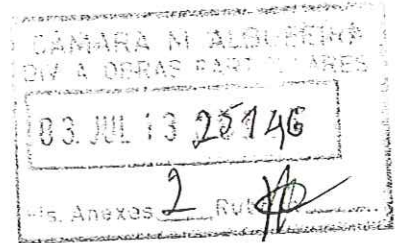 CÂMARA M. ALBUFEIRA
DIV. A. OBRAS PARTICULARES
03. JUL 13 25146
Fls. Anexos 2 Rub